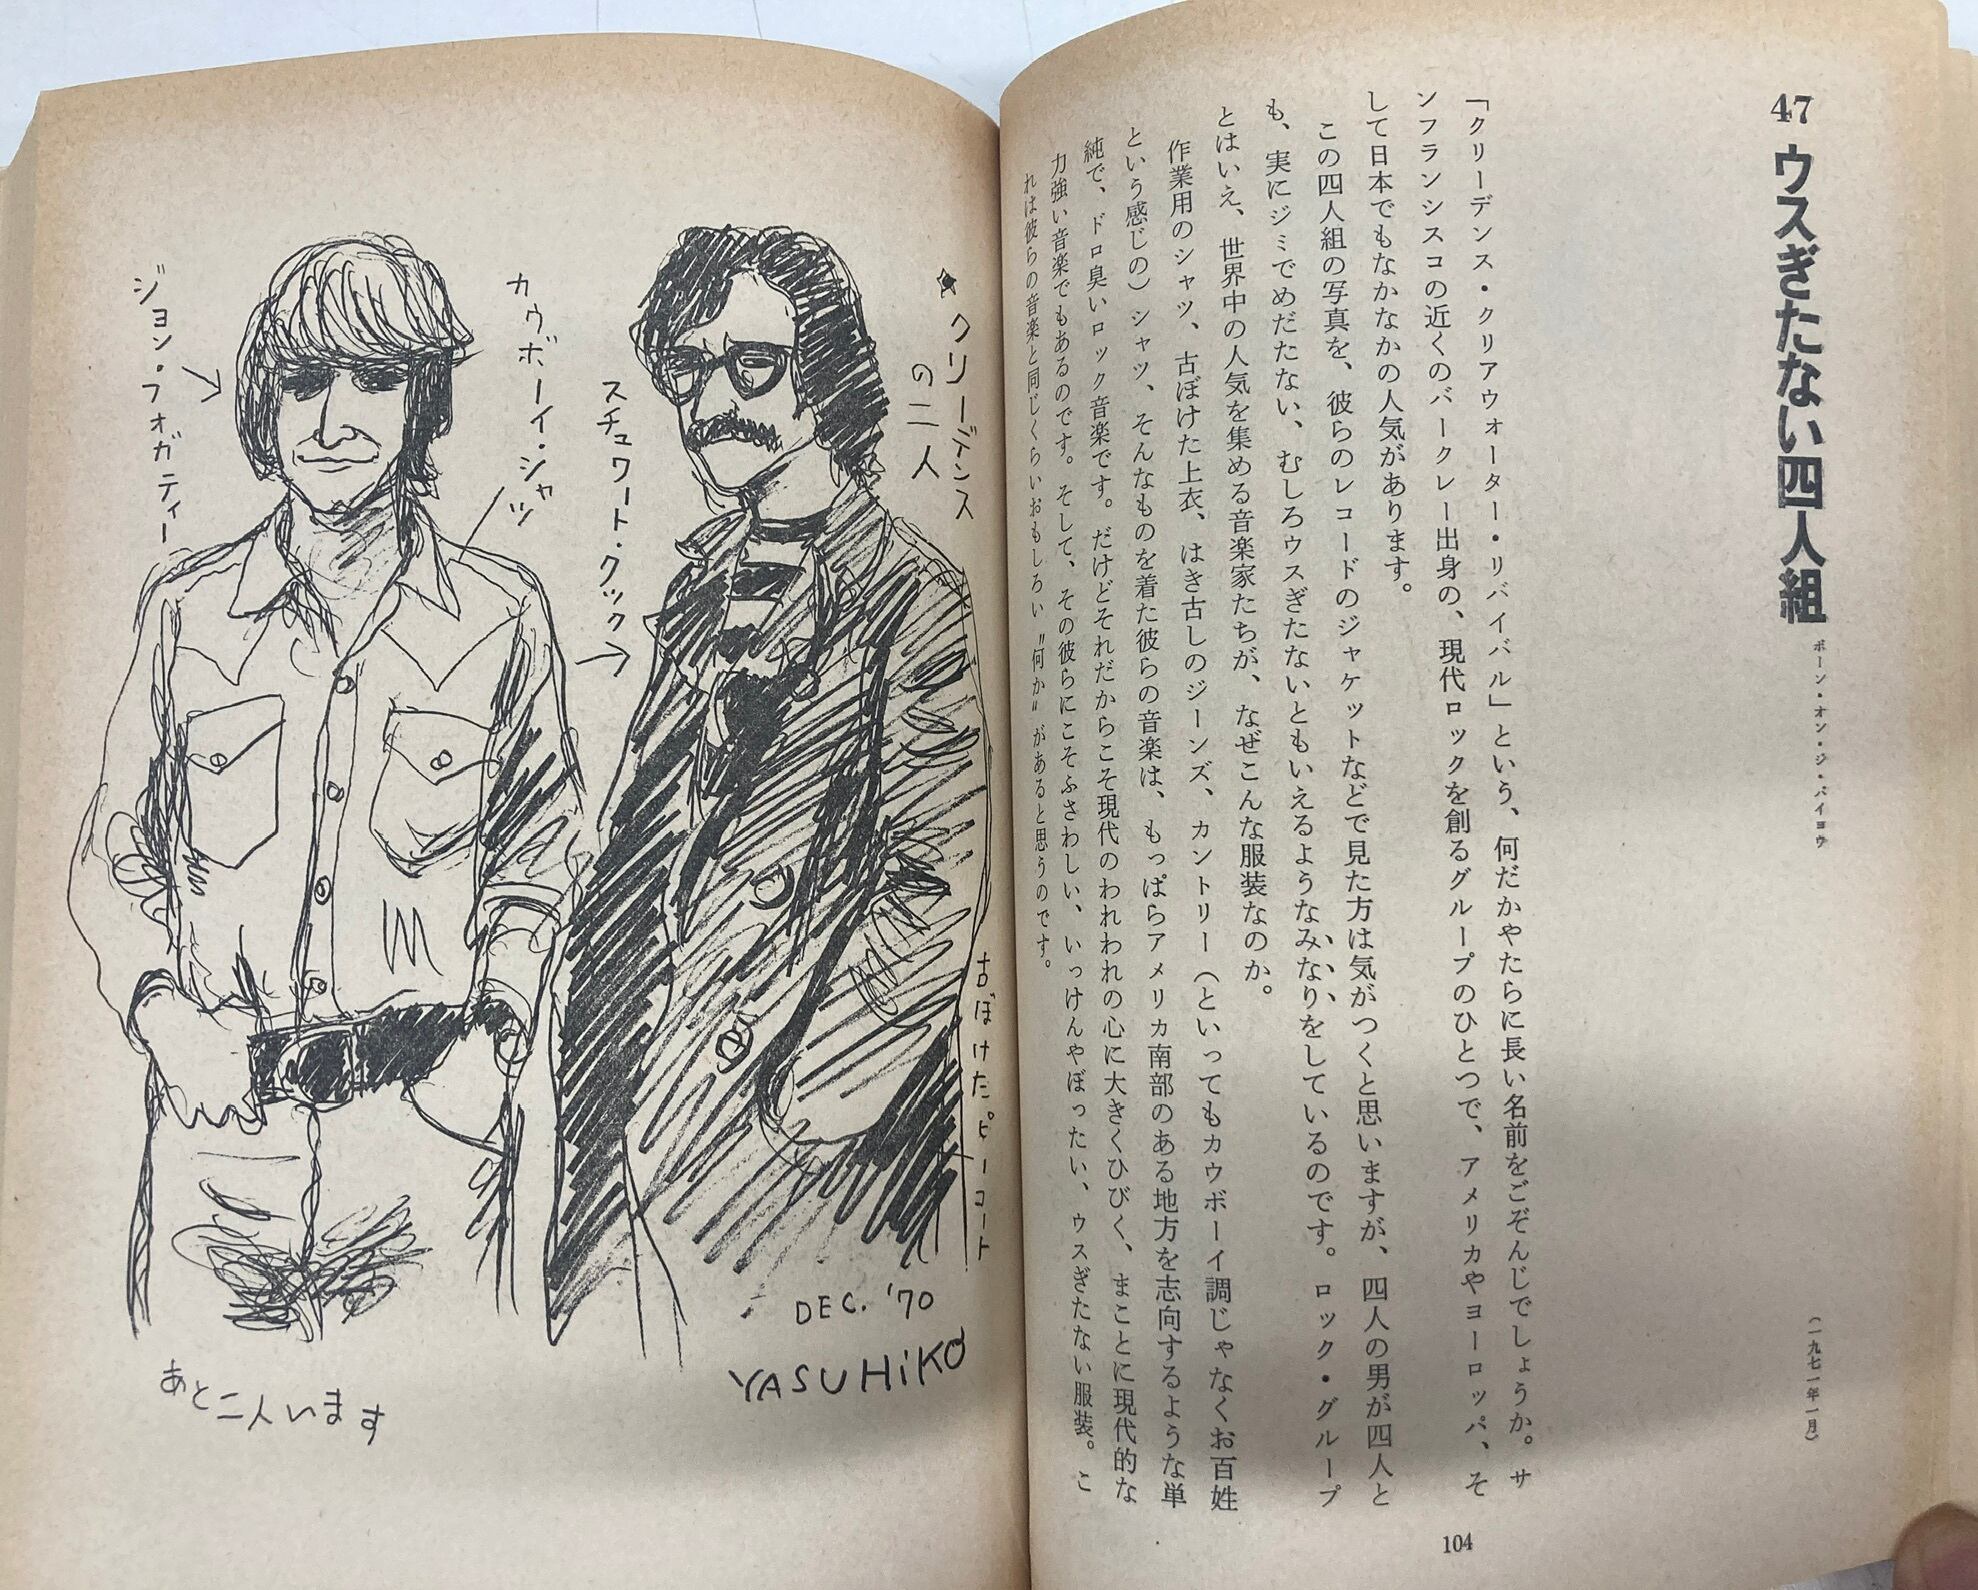 47 ウスぎたない四人組
ボーン・オン・ジ・バイヨウ
（一九七一年一月）
「クリーデンス・クリアウォーター・リバイバル」という、何だかやたらに長い名前をごぞんじでしょうか。サ
ンフランシスコの近くのバークレー出身の、現代ロックを創るグループのひとつで、アメリカやヨーロッパ、そ
して日本でもなかなかの人気があります。
この四人組の写真を、彼らのレコードのジャケットなどで見た方は気がつくと思いますが、四人の男が四人と
も、実にジミでめだたない、むしろウスぎたないともいえるようなみなりをしているのです。ロック・グループ
とはいえ、世界中の人気を集める音楽家たちが、なぜこんな服装なのか。
作業用のシャツ、古ぼけた上衣、はき古しのジーンズ、カントリー（といってもカウボーイ調じゃなくお百姓
という感じの）シャツ、そんなものを着た彼らの音楽は、もっぱらアメリカ南部のある地方を志向するような単
純で、ドロ臭いロック音楽です。だけどそれだからこそ現代のわれわれの心に大きくひびく、まことに現代的な
力強い音楽でもあるのです。そして、その彼らにこそふさわしい、いっけんやぼったい、ウスぎたない服装。こ
れは彼らの音楽と同じくらいおもしろい〝何か〟があると思うのです。
104
★クリーデンス
の二人
スチュワート・クック
カウボーイ・シャツ
ジョン・フォガティー
古ぼけたピーコート
DEC. '70
YASUHiKO
あと二人います